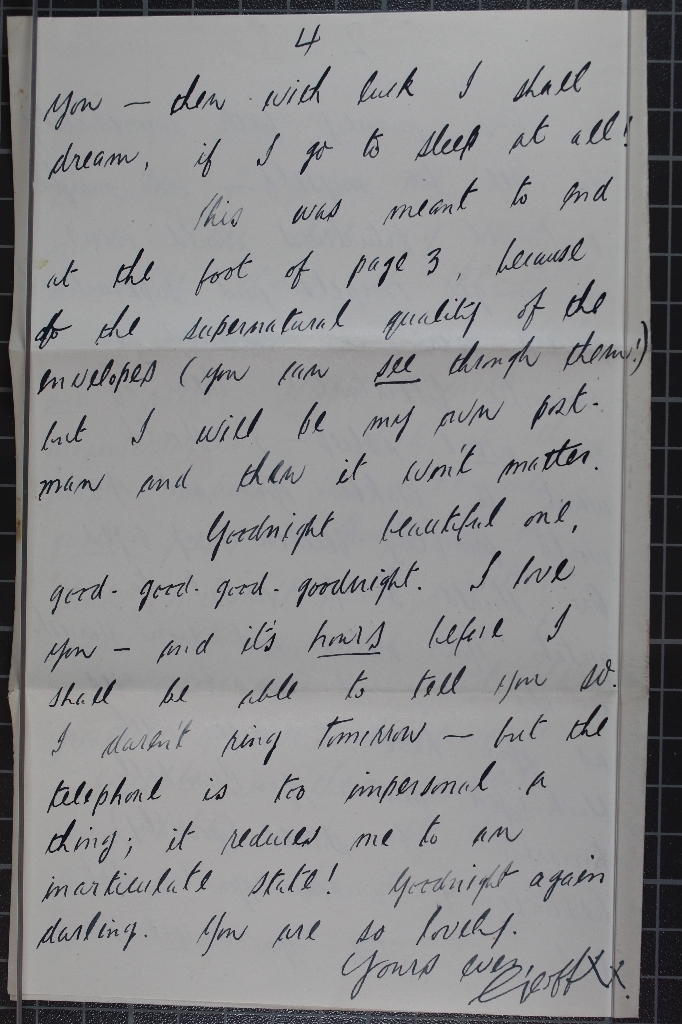 4
you — then with luck I shall
dream, if I go to sleep at all!
This was meant to end
at the foot of page 3, because
of the supernatural quality of the
envelopes (you can see through them!)
but I will be my own post-
man and then it won't matter.
Goodnight beautiful one,
good- good- good- goodnight. I love
you — and it's hours before I
shall be able to tell you so.
I daren't ring tomorrow — but the
telephone is too impersonal a
thing; it reduces me to an
inarticulate state! Goodnight again
darling. You are so lovely.
Yours ever
Geoff xx.